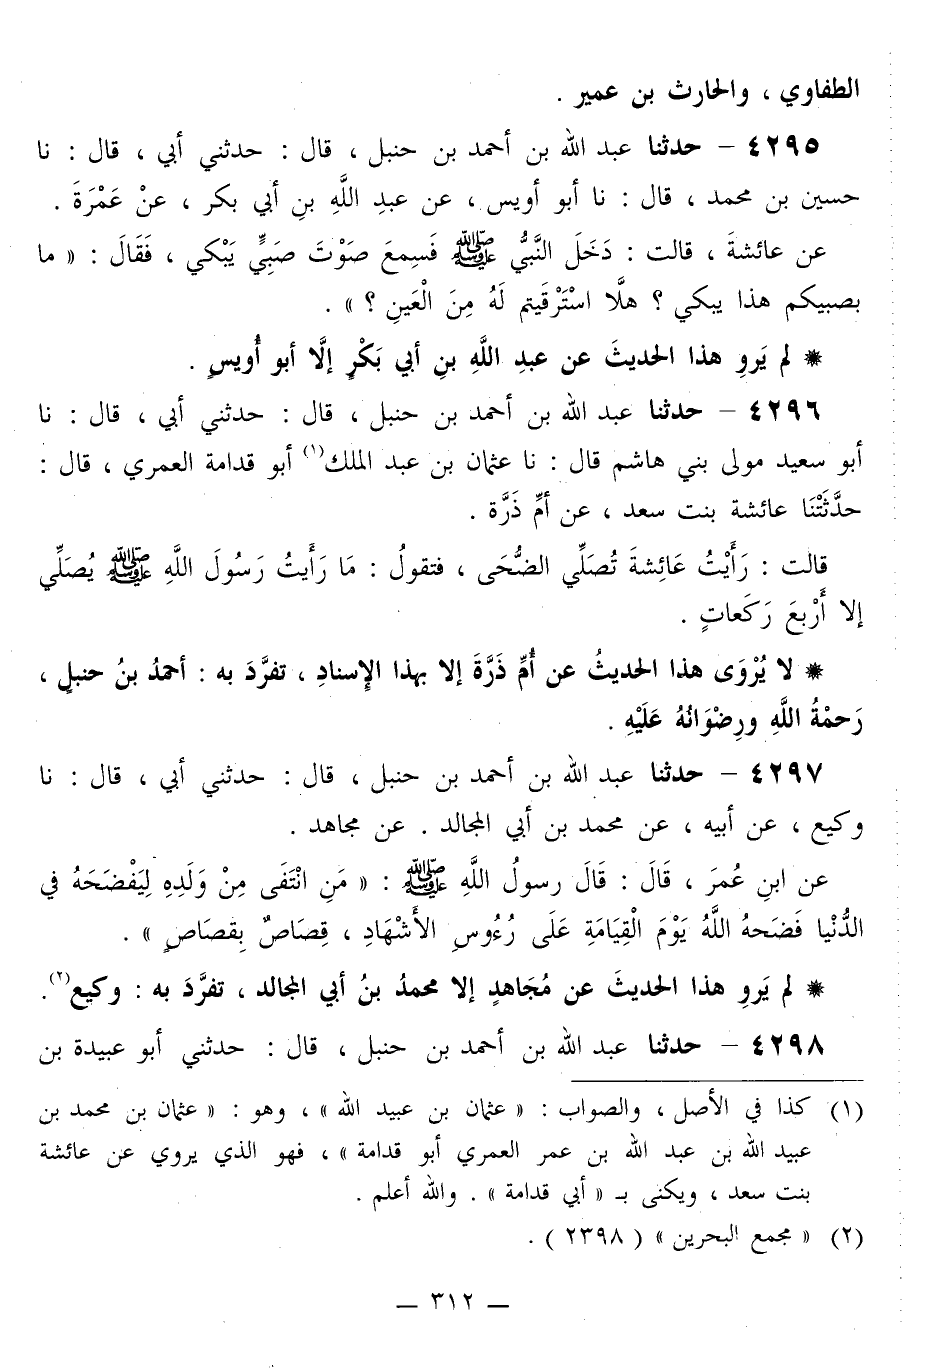 الطفاوي ، والحارث بن عمير .
٤٢٩٥ – حدثنا عبد الله بن أحمد بن حنبل ، قال : حدثني أبي ، قال : نا
حسين بن محمد ، قال : نا أبو أويس ، عن عبدِ اللَّهِ بنِ أبي بكر ، عنْ عَمْرَةَ .
عن عائشةَ ، قالت : دَخَلَ النَّبيُّ ﷺ فَسِمعَ صَوْتَ صَبِيٍّ يَبْكي ، فَقَالَ : « ما
بصبيكم هذا يبكي ؟ هلَّا اسْتَرْقَيتم لَهُ مِنَ الْعَينِ ؟ » .
* لم يَروِ هذا الحديثَ عن عبدِ اللَّهِ بنِ أبي بَكْرٍ إلَّا أبو أُويسٍ .
٤٢٩٦ – حدثنا عبد الله بن أحمد بن حنبل ، قال : حدثني أبي ، قال : نا
أبو سعيد مولى بني هاشم قال : نا عثمان بن عبد الملك(١) أبو قدامة العمري ، قال :
حدَّثَتْنَا عائشة بنت سعد ، عن أمِّ ذَرَّة .
قالت : رَأَيْتُ عَائِشةَ تُصَلِّي الضُّحَى ، فتقولُ : مَا رَأَيتُ رَسُولَ اللَّهِ ﷺ يُصَلِّي
إلا أَرْبعَ رَكَعاتٍ .
* لا يُرْوَى هذا الحديثُ عن أُمِّ ذَرَّةَ إلا بهذا الإِسنادِ ، تفرَّدَ به : أحمدُ بنُ حنبلٍ ،
رَحمْةُ اللَّهِ ورِضْوَانُهُ عَلَيْهِ .
٤٢٩٧ – حدثنا عبد الله بن أحمد بن حنبل ، قال : حدثني أبي ، قال : نا
وكيع ، عن أبيه ، عن محمد بن أبي المجالد . عن مجاهد .
عن ابنِ عُمرَ ، قَالَ : قَالَ رسولُ اللَّهِ ﷺ : « مَنِ انْتَفَى مِنْ وَلَدِهِ لِيَفْضَحَهُ في
الدُّنْيا فَضَحهُ اللَّهُ يَوْمَ الْقِيَامَةِ عَلَى رُءُوسِ الأَشْهَادِ ، قِصَاصٌ بِقصَاصٍ » .
* لم يَروِ هذا الحديثَ عن مُجَاهدٍ إلا محمدُ بنُ أبي المجالد ، تفرَّدَ به : وكيع(٢).
٤٢٩٨ – حدثنا عبد الله بن أحمد بن حنبل ، قال : حدثني أبو عبيدة بن
(١) كذا في الأصل ، والصواب : « عثمان بن عبيد الله » ، وهو : « عثمان بن محمد بن
عبيد الله بن عبد الله بن عمر العمري أبو قدامة » ، فهو الذي يروي عن عائشة
بنت سعد ، ويكنى بـ « أبي قدامة » . والله أعلم .
(٢) « مجمع البحرين » ( ٢٣٩٨ ) .
— ٣١٢ —